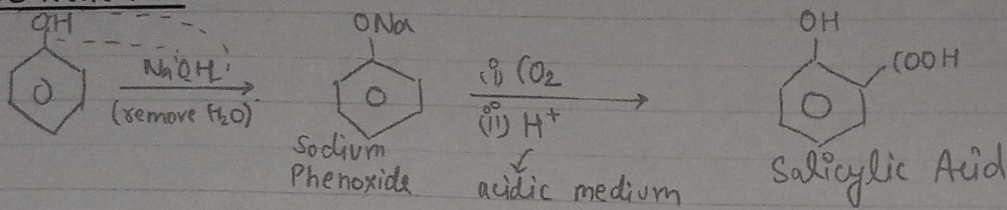 OH
NaOH
(remove H₂O)
ONa
Sodium
Phenoxide
(i) CO₂
(ii) H⁺
acidic medium
OH
COOH
Salicylic Acid